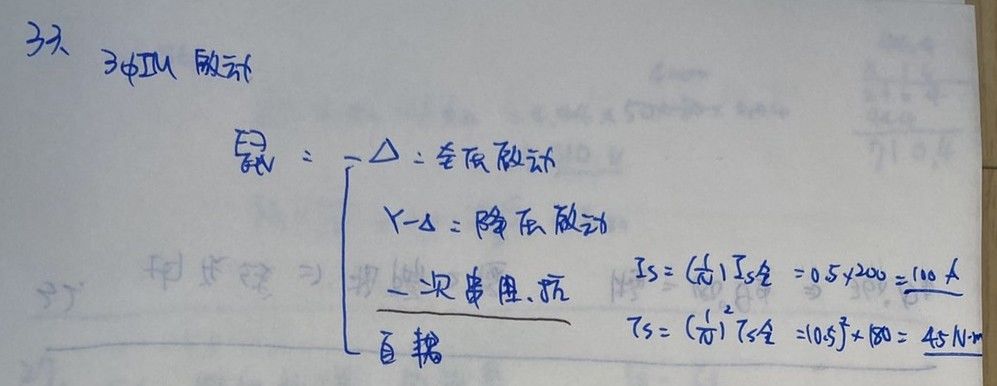 33、
3φIM 啟动
鼠 : Δ : 全压啟动
Y-Δ : 降压啟动
一次串阻、抗 Is = (1/n) Is全 = 0.5×200 = 100 A
自耦 Ts = (1/n)² Ts全 = (0.5)² × 180 = 45 N·m